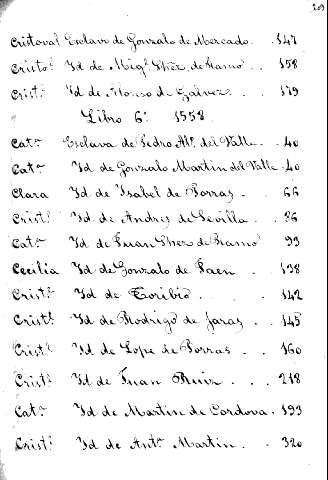 209
Cristoval Esclavo de Gonzalo de Mercado. . 147
Cristo.l Yd de Mig.l Shez. de Ramo . . 158
Crist.l Yd de Alonso de Galvez . . 179
Libro 6.º 1558.
Cat.a Esclava de Pedro M.n del Valle . . 40
Cat.a Yd de Gonzalo Martin del Valle . 40
Clara Yd de Ysabel de Porras . . 66
Crist.l Yd de Andres de Sevilla . . 86
Cat.a Yd de Juan Shez de Ramo 99
Cecilia Yd de Gonzalo de Jaen . . 138
Crist.l Yd de Toribio . . . 142
Crist.l Yd de Rodrigo de Jaras . . 145
Crist.l Yd de Lope de Porras . . 160
Crist.l Yd de Juan Ruiz . . . 218
Cat.a Yd de Martin de Cordova . 199
Crist.l Yd de Ant.n Martin . . 320